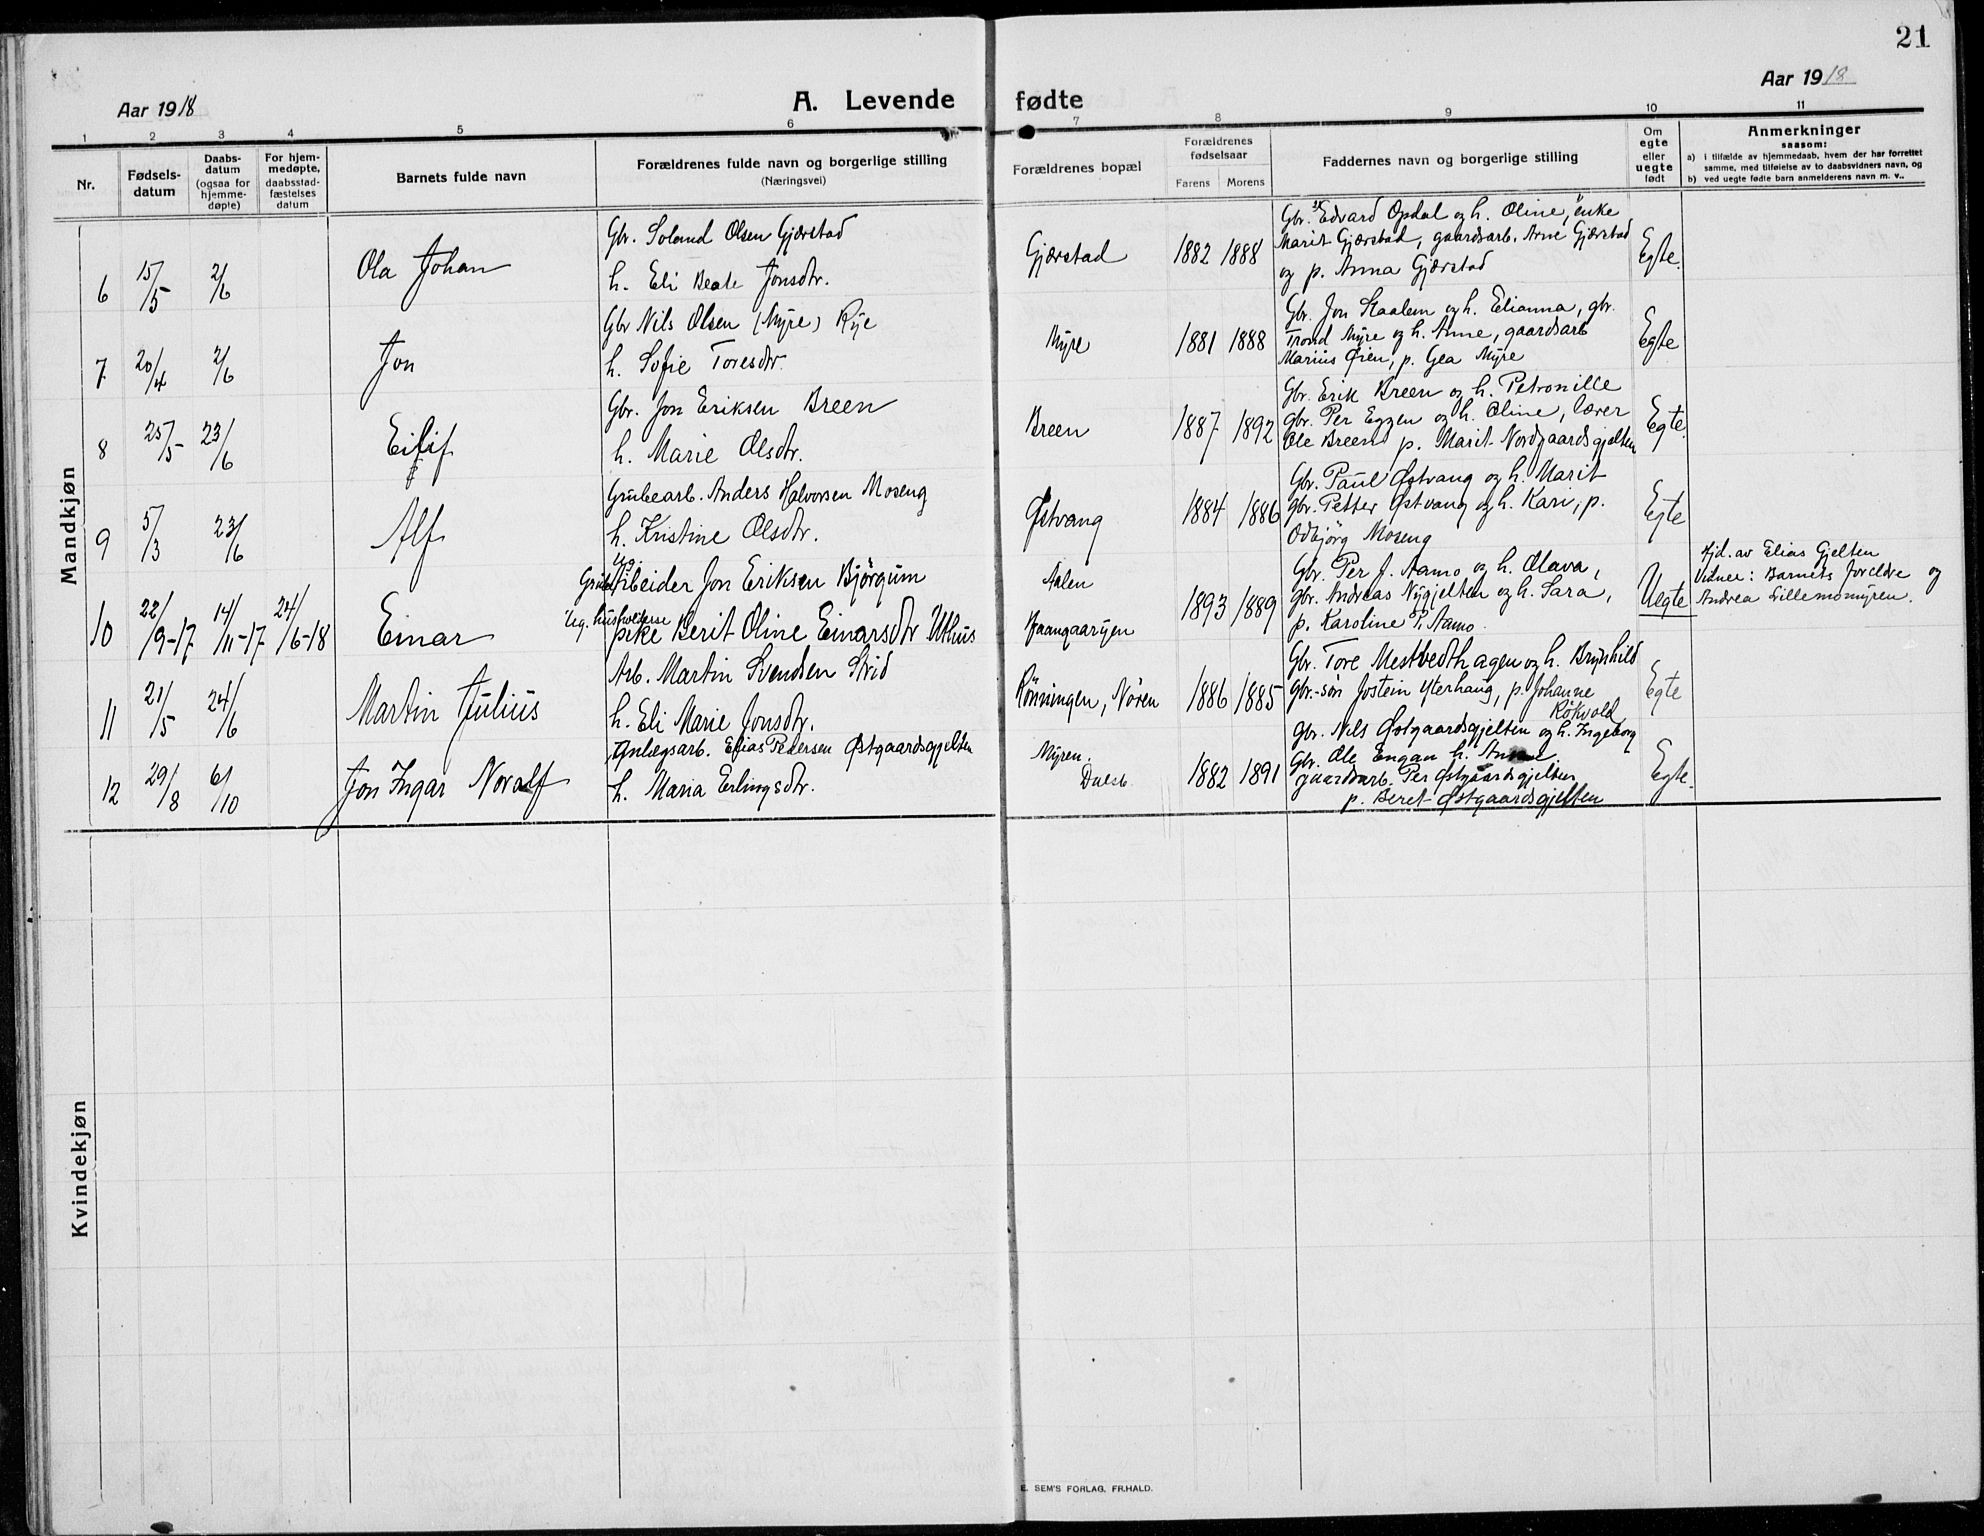 21
Aar 1918
A. Levende fødte
Aar 1918
1 2 3 4 5 6 7 8 9 10 11
Nr.
Fødsels-
datum
Daabs-
datum
(ogsaa for
hjemme-
døpte)
For hjem-
medøpte,
daabsstad-
fæstelses
datum
Barnets fulde navn
Forældrenes fulde navn og borgerlige stilling
(Næringsvei)
Forældrenes bopæl
Forældrenes
fødselsaar
Farens Morens
Faddernes navn og borgerlige stilling
Om
egte
eller
uegte
født
Anmerkninger
saasom:
a) i tilfælde av hjemmedaab, hvem der har forrettet
samme, med tilføielse av to daabsvidners navn, og
b) ved uegte fødte barn anmelderens navn m. v..
Mandkjøn
6 15/5 2/6 Ola Johan
Gbr. Olsen Gjærstad
h. Eli Beate Jonsdtr.
Gjærstad 1882 1888
Gbr. Edvard Opdal og h. Oline, enke
Marit Gjærstad, gaardsarb. Arne Gjærstad
og p. Anna Gjærstad
Egte.
7 20/4 2/6 Jon
Gbr Nils Olsen (Myre) Rye
h. Sofie Toresdtr.
Myre 1881 1888
Gbr. Jon Kaalen og h. Elianna, gbr.
Trond Myre og h. Anne, gaardsarb
Marius Øien, p. Gea Myre
Egte
8 25/5 23/6 Eilif
Gbr. Jon Eriksen Breen
h. Marie Olsdtr.
Breen 1887 1892
Gbr. Erik Breen og h. Petronille
gbr. Per Eggen og h. Oline, lærer
Ole Breen p. Marit Nordgaardsgjelten
Egte.
9 5/3 23/6 Alf
Grubearb. Anders Halvorsen Moseng
h. Kristine Olsdtr.
Østvang 1884 1886
Gbr. Paul Østvang og h. Marit
gbr. Petter Østvang og h. Kari, p.
Odbjörg Moseng
Egte
10 22/9-17 14/11-17 24/6-18 Einar
Ug.
Grubearbeider Jon Eriksen Björgum
Ug. husholderske
pike Berit Oline Einarsdtr Uthus
Aalen
1893 1889
Gbr. Per J. Aamo og h. Olava,
gbr. Andreas Nygjelten og h. Sara,
p. Karoline P. Aamo
Uegte
Hjd. av Elias Gjelten
Vidner: Barnets foreldre og
Andrea Lillemomyren.
11 21/5 24/6 Martin Julius
Arb. Martin Svendsen Strid
h. Eli Marie Jonsdtr.
Rönningen, Nören 1886 1885
Gbr. Tore Mestvedthagen og h. Brynhild
Gbr.-søn Jostein Yterhaug, p. Johanne
Rökvold
Egte
12 29/8 6/10 Jon Ingar Noralf
Anlægsarb. Elias Pedersen Østgaardsgjelten
h. Maria Erlingsdtr.
Myren.
1882 1891
Gbr. Nils Østgaardsgjelten og h. Ingeborg
Gbr. Ole Engan h.
gaardsarb. Per Østgaardsgjelten
p. Beret Østgaardsgjelten
Egte.
Kvindekjøn
E. SEM'S FORLAG, FR.HALD.